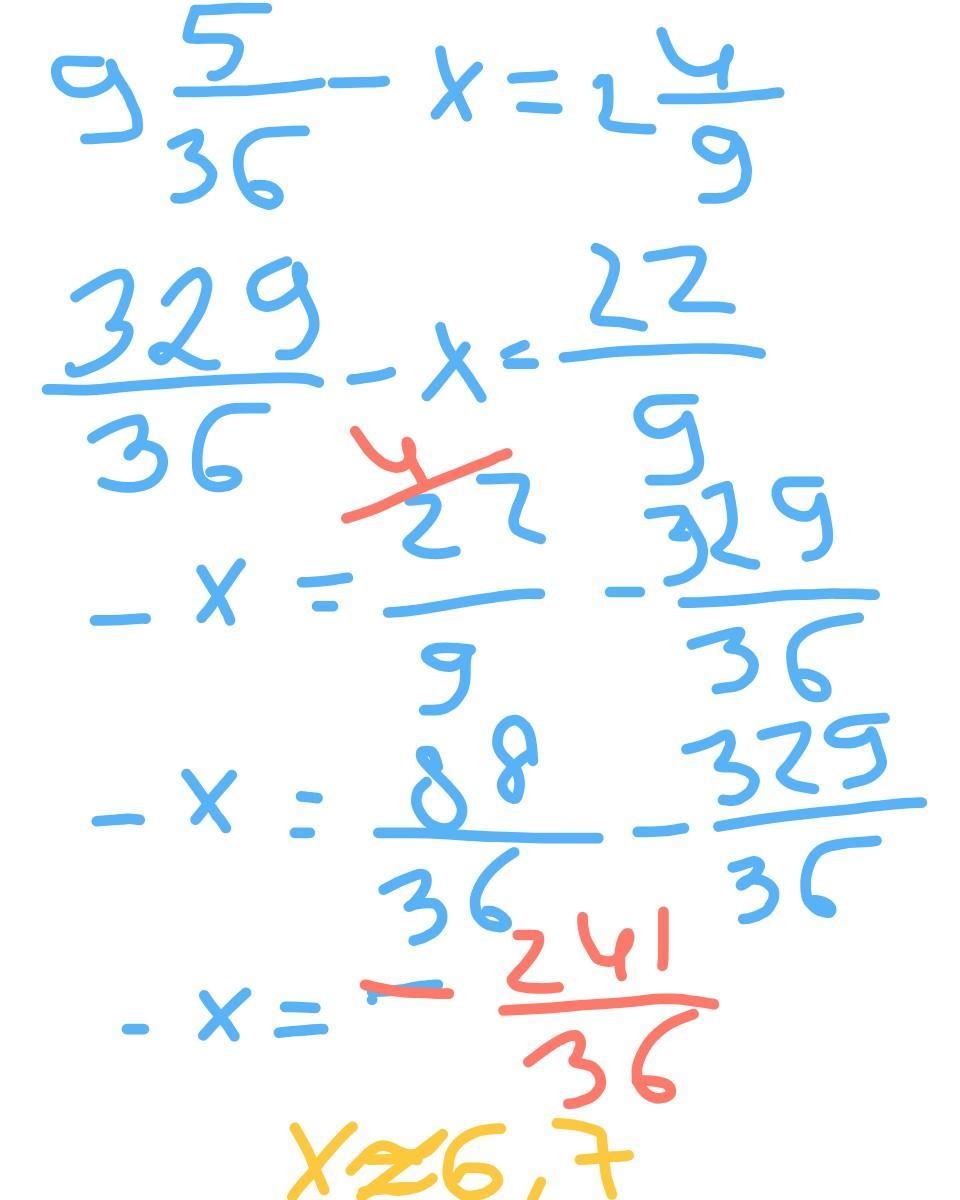 9 5/36 - x = 2 4/9
329/36 - x = 22/9
- x = 22/9 - 329/36
4
- x = 88/36 - 329/36
- x = - 241/36
x ≈ 6,7